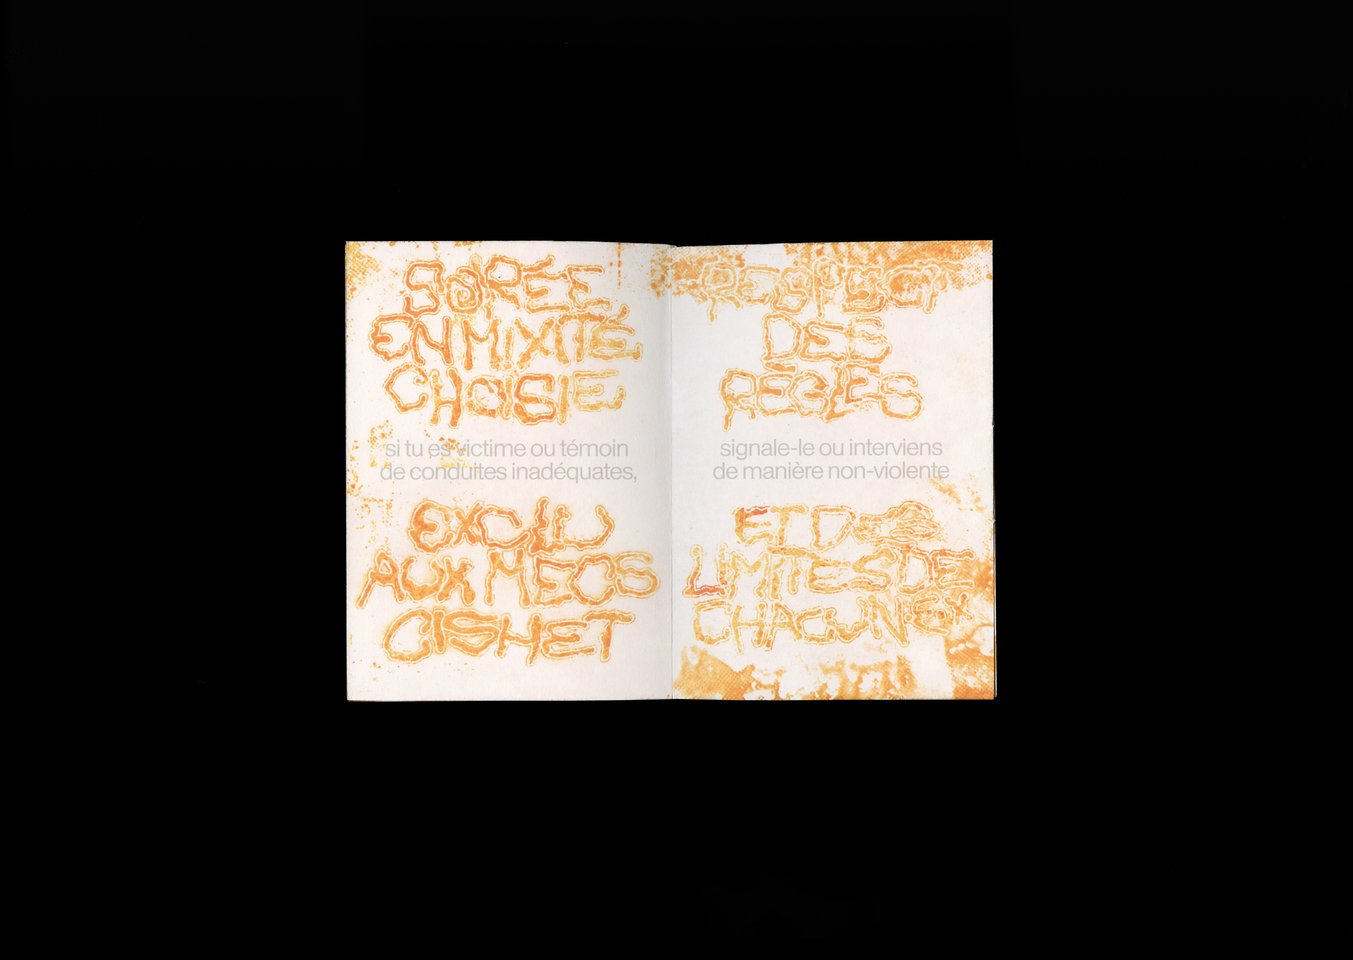 SOIRÉE
EN MIXITÉ
CHOISIE
si tu es victime ou témoin
de conduites inadéquates,
EXCLU
AUX MECS
CISHET
RESPECT
DES
RÈGLES
signale-le ou interviens
de manière non-violente
ET DES
LIMITES DE
CHACUN·EX